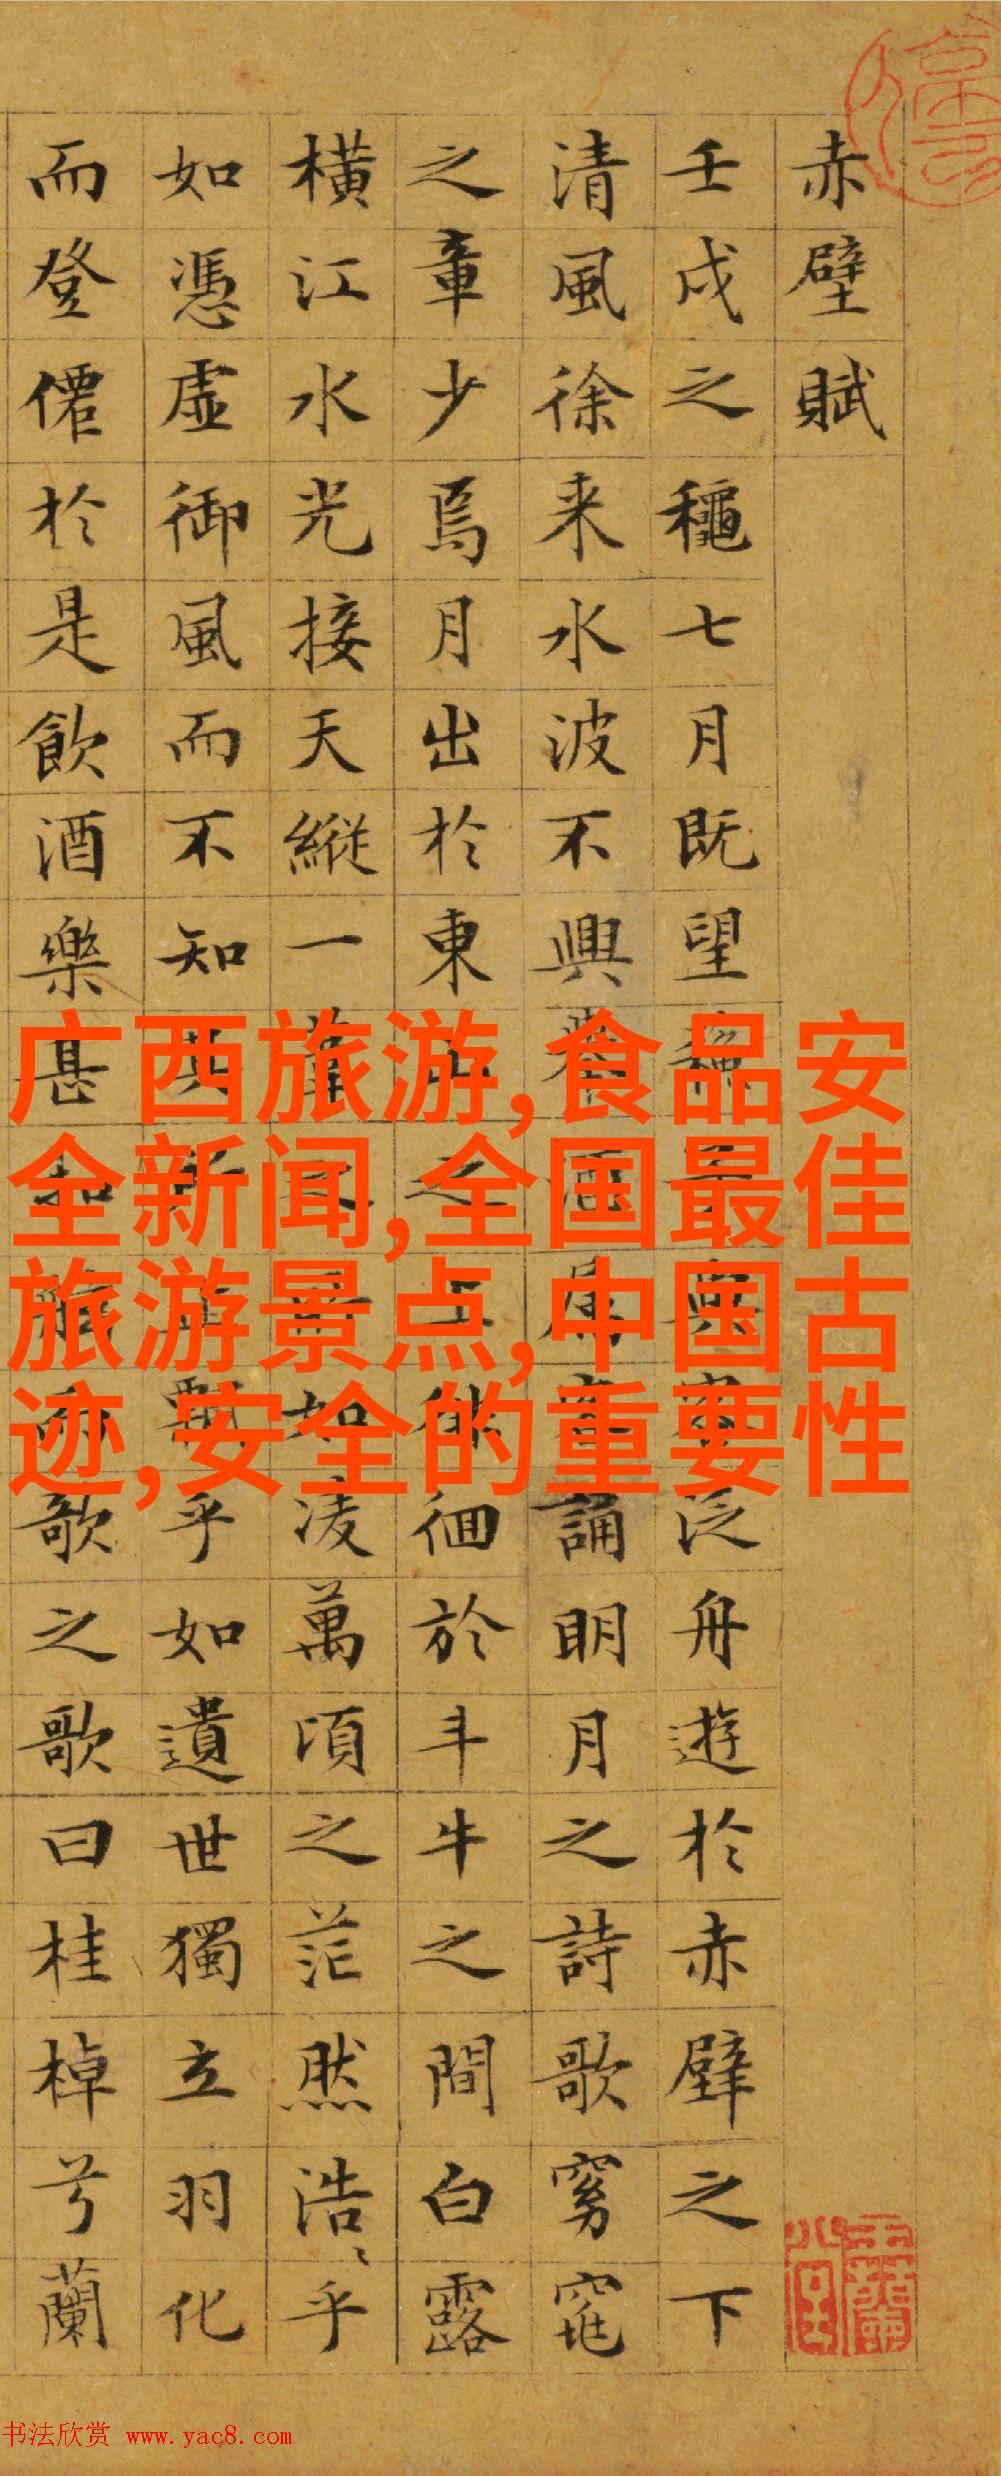 赤壁賦
壬戌之龝七月既望與泛舟遊於赤壁之下
清風徐来水波不興舉酒屬客誦明月之詩歌窈窕
之章少焉月出於東山之上徘徊於斗牛之間白露
横江水光接天縱一葦之所如凌萬頃之茫然浩〻乎
如憑虚御風而不知其所止飄乎如遺世獨立羽化
而登僊於是飲酒樂甚扣舷而歌之歌曰桂棹兮蘭
广西旅游,食品安
全新闻,全国最佳
旅游景点,中国古
迹,安全的重要性
书法欣赏 www.yac8.com